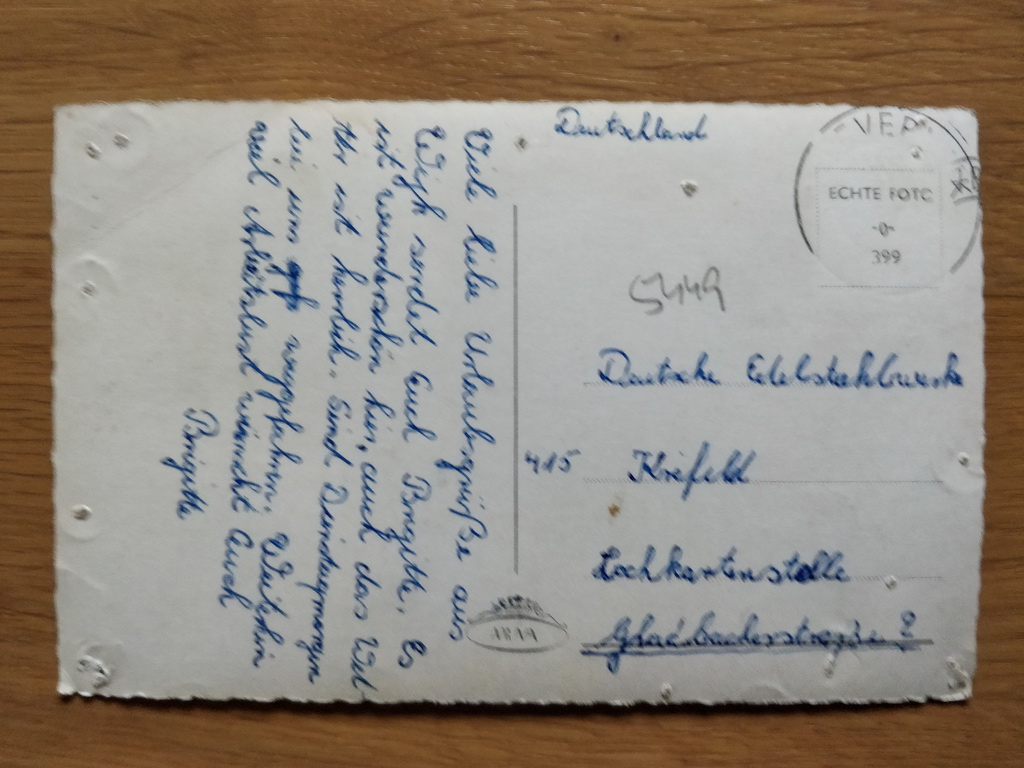 Viele liebe Urlaubsgrüße aus
Wijk sendet Euch Brigitte. Es
ist wunderschön hier, auch das Wet-
ter ist herrlich. Sind Dienstagmorgen
um weggefahren. Weiterhin
viel Arbeitslust wünscht Euch
Brigitte
Deutschland
ECHTE FOTO
-0-
399
5449
Deutsche Edelstahlwerke
415 Krefeld
Lochkartenstelle
Gladbacherstraße ?